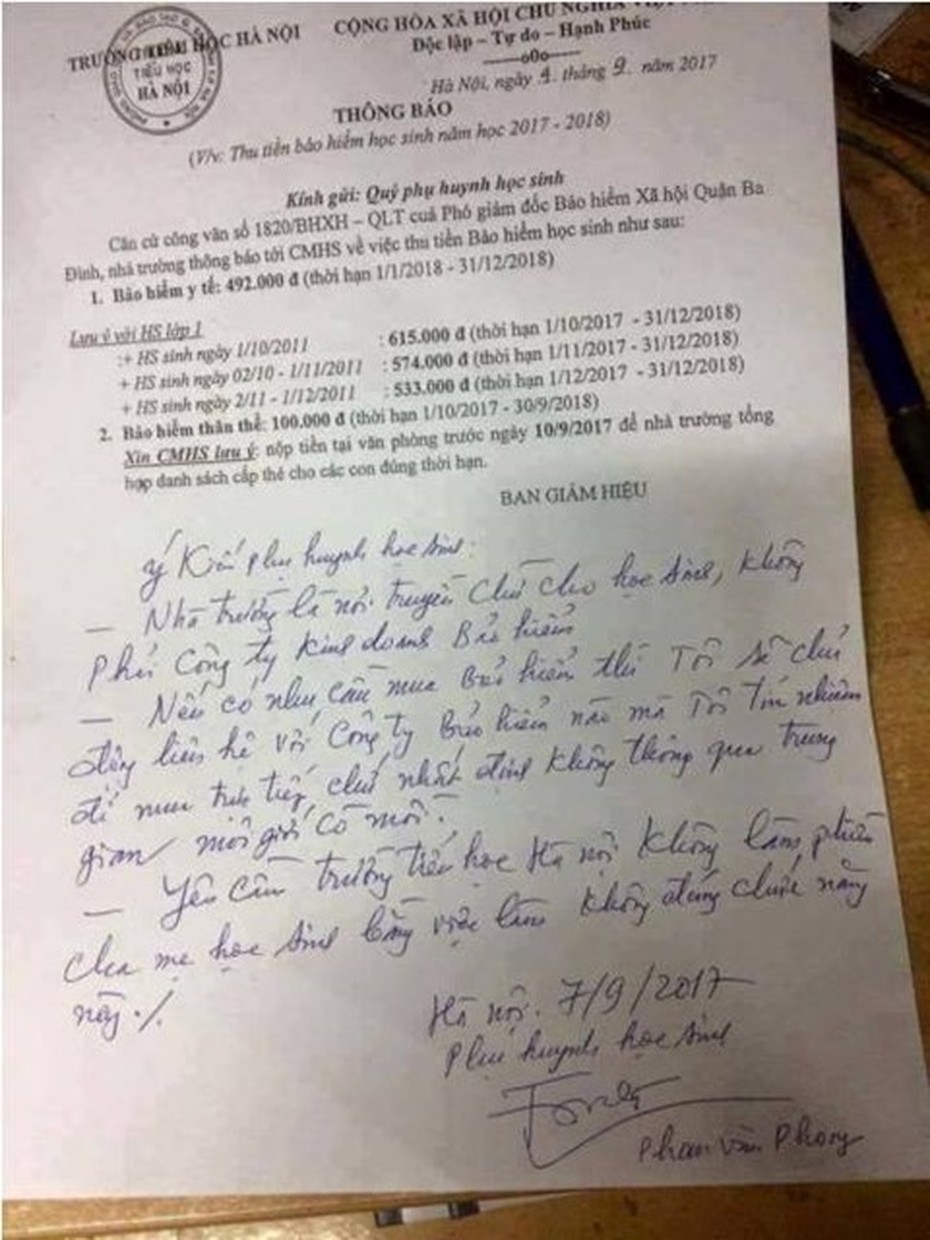 TRƯỜNG TIỂU HỌC HÀ NỘI
CỘNG HÒA XÃ HỘI CHỦ NGHĨA VIỆT
Độc lập – Tự do – Hạnh Phúc
-----o0o-----
TIỂU HỌC
HÀ NỘI
Hà Nội, ngày 4. tháng 9. năm 2017
THÔNG BÁO
(V/v: Thu tiền bảo hiểm học sinh năm học 2017 - 2018)
Kính gửi: Quý phụ huynh học sinh
Căn cứ công văn số 1820/BHXH – QLT cuả Phó giám đốc Bảo hiểm Xã hội Quận Ba
Đình, nhà trường thông báo tới CMHS về việc thu tiền Bảo hiểm học sinh như sau:
1. Bảo hiểm y tế: 492.000 đ (thời hạn 1/1/2018 - 31/12/2018)
Lưu ý với HS lớp 1
:+ HS sinh ngày 1/10/2011 : 615.000 đ (thời hạn 1/10/2017 - 31/12/2018)
+ HS sinh ngày 02/10 - 1/11/2011 : 574.000 đ (thời hạn 1/11/2017 - 31/12/2018)
+ HS sinh ngày 2/11 - 1/12/2011 : 533.000 đ (thời hạn 1/12/2017 - 31/12/2018)
2. Bảo hiểm thân thể: 100.000 đ (thời hạn 1/10/2017 - 30/9/2018)
Xin CMHS lưu ý: nộp tiền tại văn phòng trước ngày 10/9/2017 để nhà trường tổng
hợp danh sách cấp thẻ cho các con đúng thời hạn.
BAN GIÁM HIỆU
Ý Kiến phụ huynh học sinh:
— Nhà trường là nơi truyền chữ cho học sinh, không
phải Công ty kinh doanh Bảo hiểm
— Nếu có nhu cầu mua Bảo hiểm thì Tôi sẽ chủ
động liên hệ với Công ty Bảo hiểm nào mà Tôi Tín nhiệm
để mua trực tiếp, chứ nhất định không thông qua trung
gian môi giới cò mồi.
— Yêu cầu trường tiểu học Hà nội không làm phiền
cha mẹ học sinh bằng việc làm không đúng chức năng
này ./.
Hà nội. 7/9/2017
Phụ huynh học sinh
Phan văn Phong